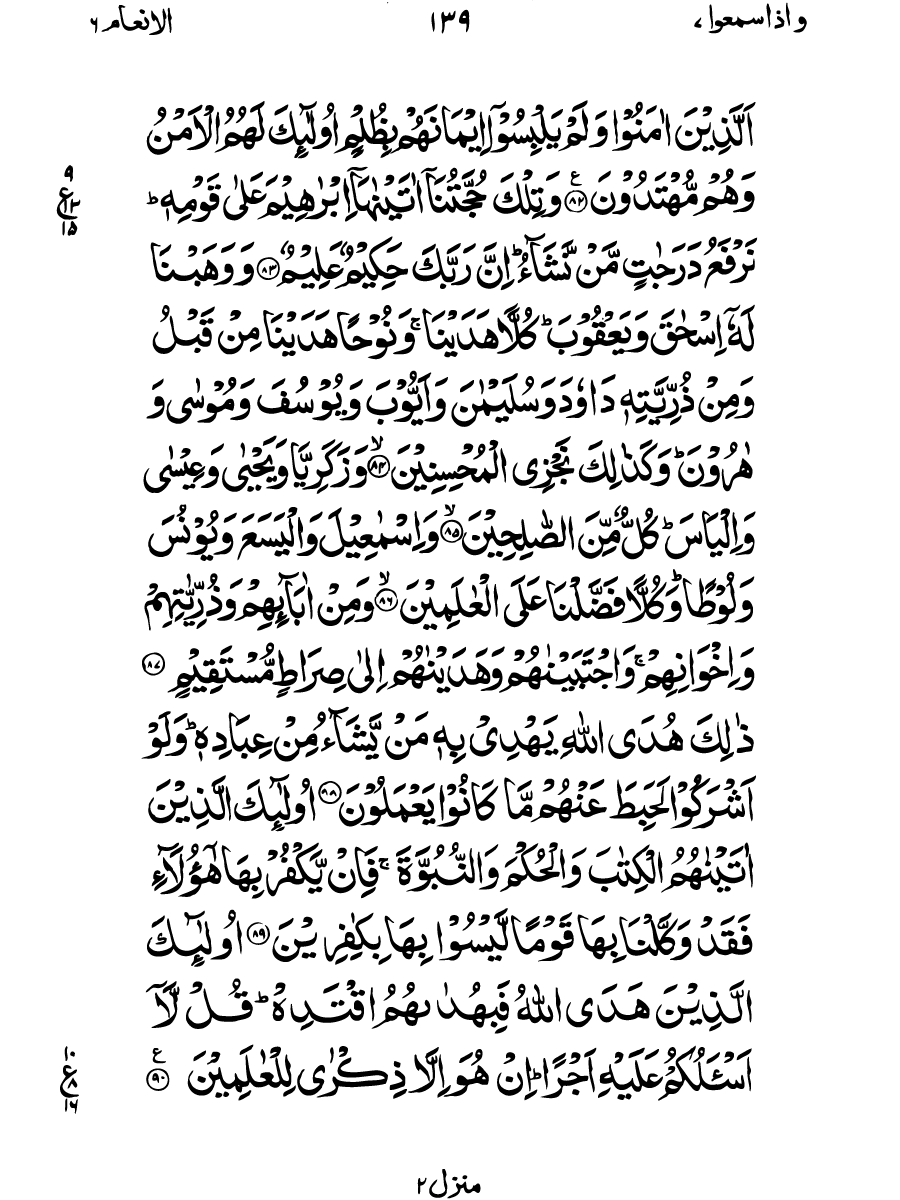 و اذا سمعوا ٧ ١٣٩ الانعام ٦
اَلَّذِيْنَ اٰمَنُوْا وَلَمْ يَلْبِسُوْۤا اِيْمَانَهُمْ بِظُلْمٍ اُولٰٓئِكَ لَهُمُ الْاَمْنُ
وَهُمْ مُّهْتَدُوْنَ ﴿۸۲﴾ ع وَتِلْكَ حُجَّتُنَاۤ اٰتَيْنٰهَاۤ اِبْرٰهِيْمَ عَلٰى قَوْمِهٖ ؕ
٩
ع ١٣
١٥
نَرْفَعُ دَرَجٰتٍ مَّنْ نَّشَآءُ ؕ اِنَّ رَبَّكَ حَكِيْمٌ عَلِيْمٌ ﴿۸۳﴾ وَوَهَبْنَا
لَهٗۤ اِسْحٰقَ وَيَعْقُوْبَ ؕ كُلًّا هَدَيْنَا ۚ وَنُوْحًا هَدَيْنَا مِنْ قَبْلُ
وَمِنْ ذُرِّيَّتِهٖ دَاوٗدَ وَسُلَيْمٰنَ وَاَيُّوْبَ وَيُوْسُفَ وَمُوْسٰى وَ
هٰرُوْنَ ؕ وَكَذٰلِكَ نَجْزِى الْمُحْسِنِيْنَ ﴿۸۴﴾ۙ وَزَكَرِيَّا وَيَحْيٰى وَعِيْسٰى
وَاِلْيَاسَ ؕ كُلٌّ مِّنَ الصّٰلِحِيْنَ ﴿۸۵﴾ۙ وَاِسْمٰعِيْلَ وَالْيَسَعَ وَيُوْنُسَ
وَلُوْطًا ؕ وَكُلًّا فَضَّلْنَا عَلَى الْعٰلَمِيْنَ ﴿۸۶﴾ۙ وَمِنْ اٰبَآئِهِمْ وَذُرِّيّٰتِهِمْ
وَاِخْوَانِهِمْ ۚ وَاجْتَبَيْنٰهُمْ وَهَدَيْنٰهُمْ اِلٰى صِرَاطٍ مُّسْتَقِيْمٍ ﴿۸۷﴾
ذٰلِكَ هُدَى اللّٰهِ يَهْدِىْ بِهٖ مَنْ يَّشَآءُ مِنْ عِبَادِهٖ ؕ وَلَوْ
اَشْرَكُوْا لَحَبِطَ عَنْهُمْ مَّا كَانُوْا يَعْمَلُوْنَ ﴿۸۸﴾ اُولٰٓئِكَ الَّذِيْنَ
اٰتَيْنٰهُمُ الْكِتٰبَ وَالْحُكْمَ وَالنُّبُوَّةَ ۚ فَاِنْ يَّكْفُرْ بِهَا هٰٓؤُلَآءِ
فَقَدْ وَكَّلْنَا بِهَا قَوْمًا لَّيْسُوْا بِهَا بِكٰفِرِيْنَ ﴿۸۹﴾ اُولٰٓئِكَ
الَّذِيْنَ هَدَى اللّٰهُ فَبِهُدٰىهُمُ اقْتَدِهْ ؕ قُلْ لَّاۤ
اَسْـَٔلُكُمْ عَلَيْهِ اَجْرًا ؕ اِنْ هُوَ اِلَّا ذِكْرٰى لِلْعٰلَمِيْنَ ﴿۹۰﴾ ع
١٠
ع ٨
١٦
منزل ٢